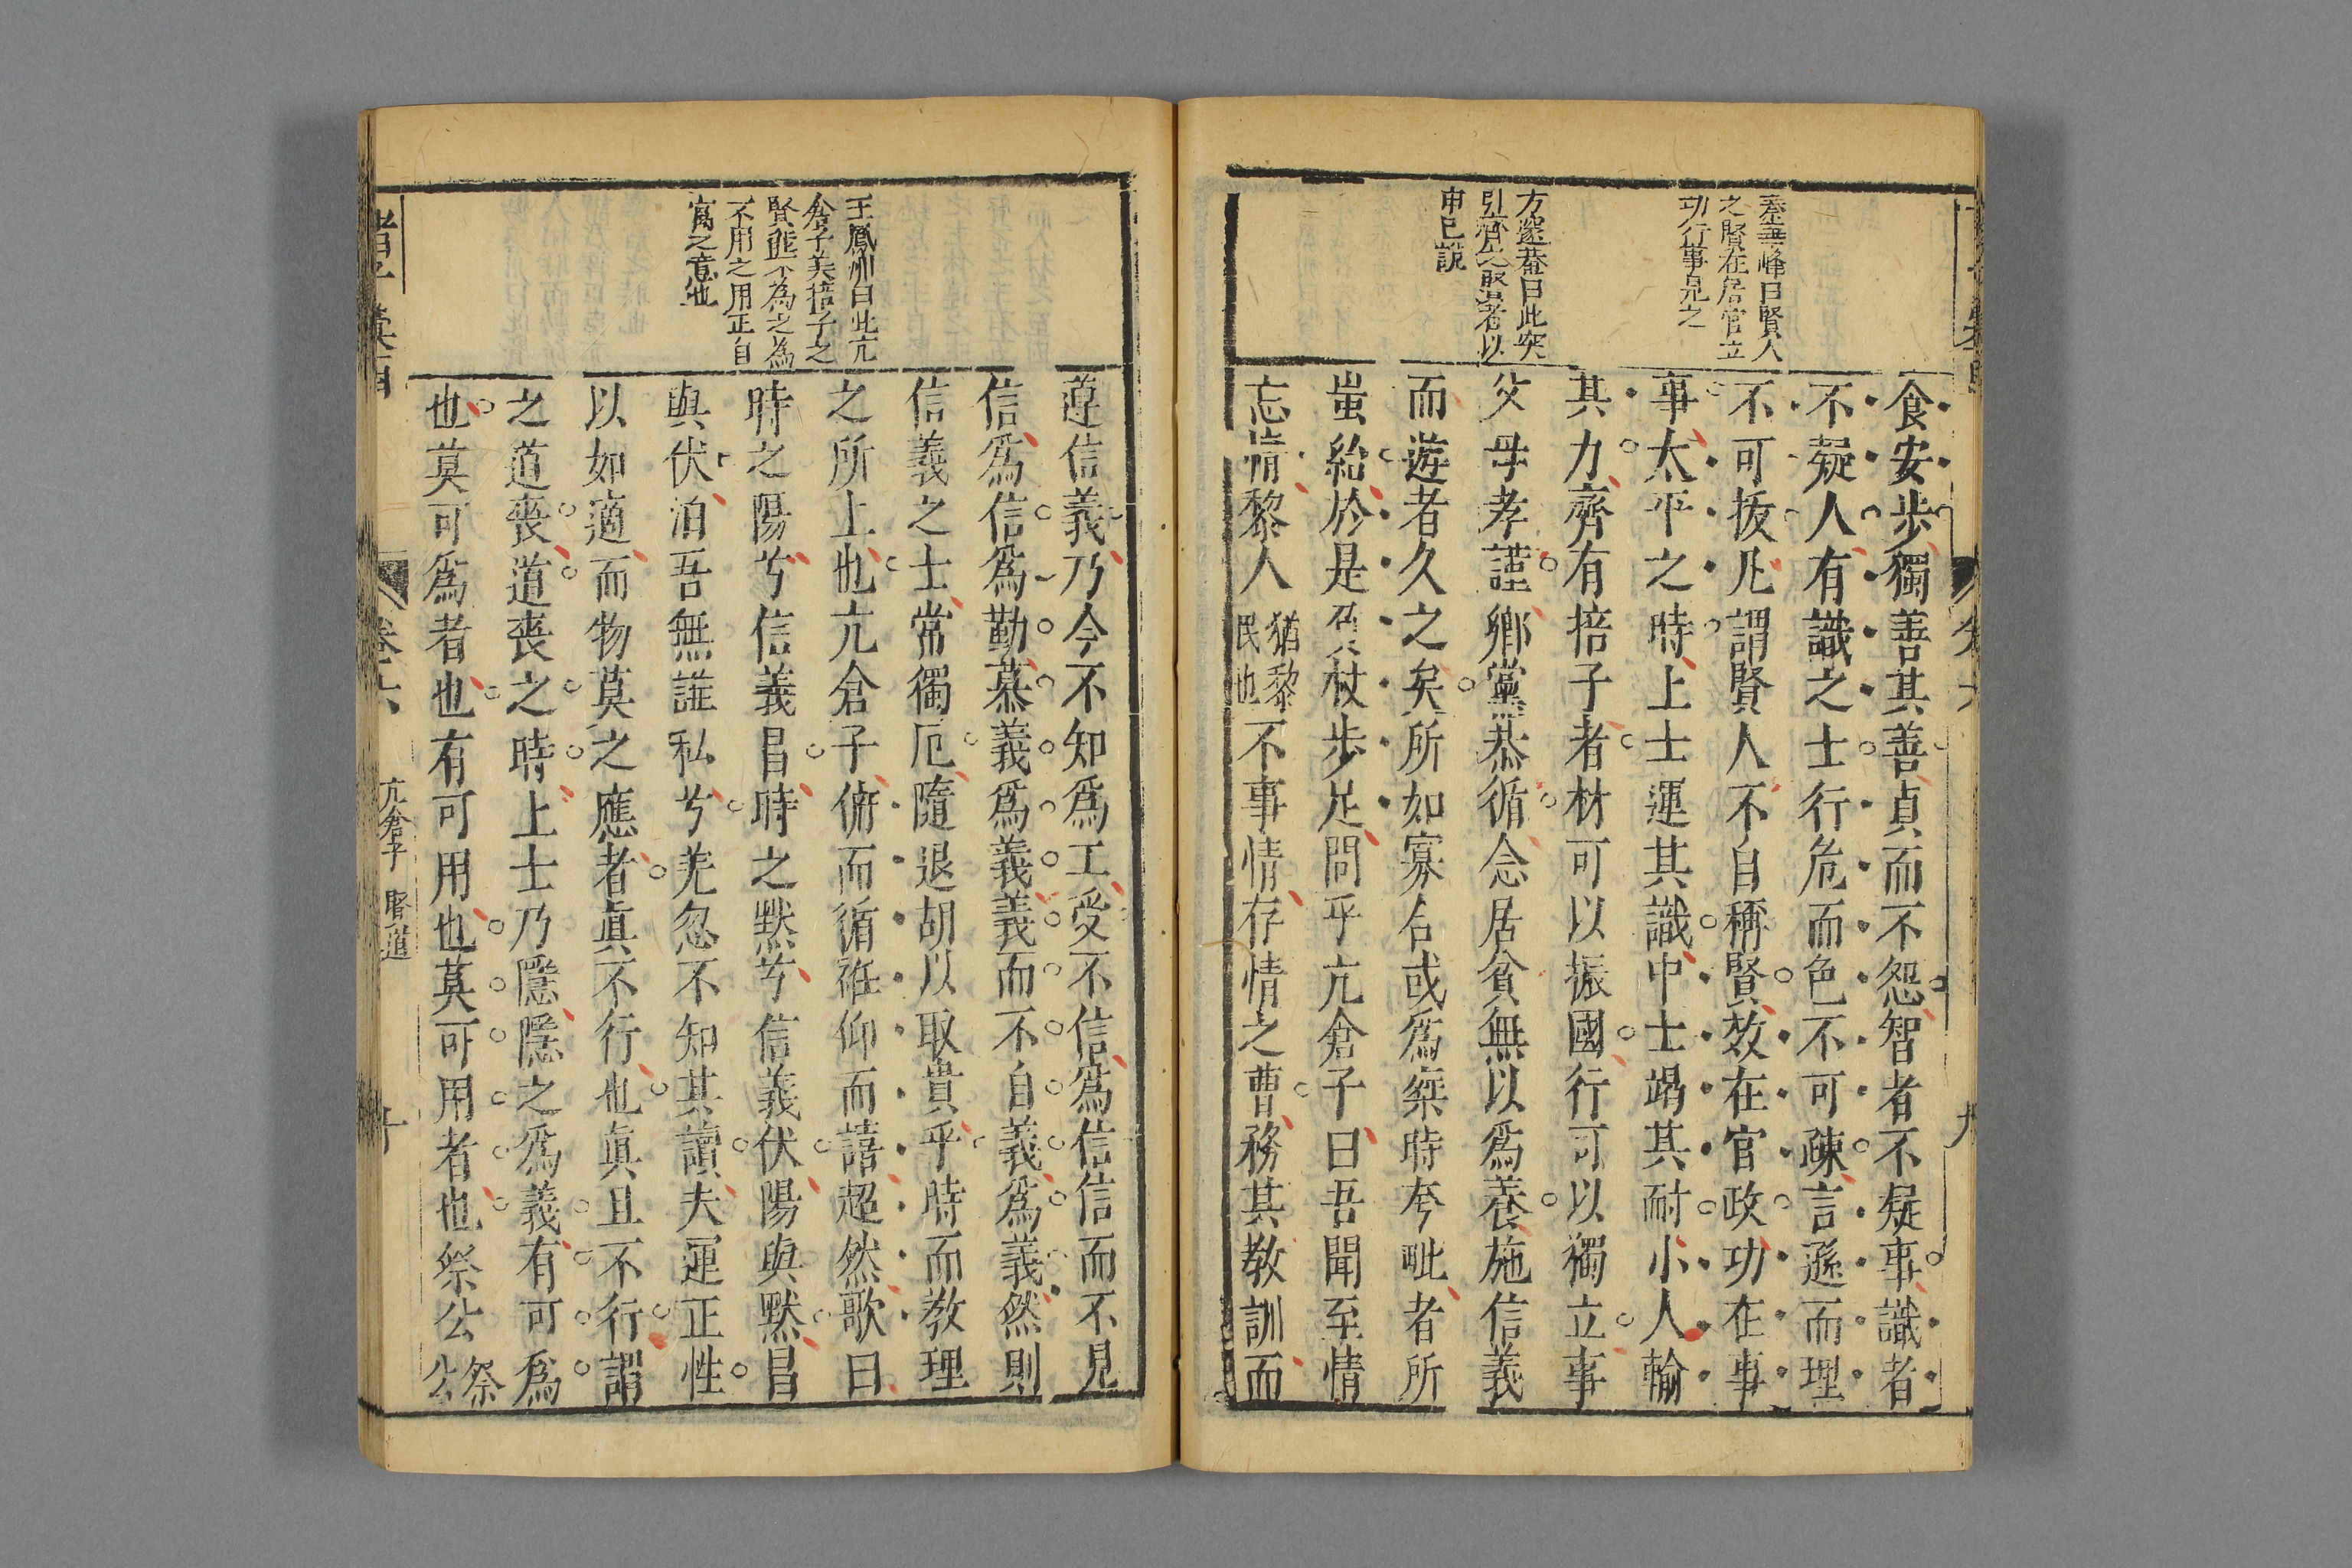 秦華峰曰賢人
之賢在居官立
功行事見之
方遜菴曰此突
引齊之賢者以
申已說
食安步獨善其善貞而不怨智者不疑事識者
不疑人有識之士行危而色不可疎言遜而理
不可拔凡謂賢人不自稱賢效在官政功在事
事太平之時上士運其識中士竭其耐小人輸
其力齊有掊子者材可以振國行可以獨立事
父母孝謹鄉黨恭循念居貧無以爲養施信義
而遊者久之矣所如寡合或爲桀時夸毗者所
蚩紿於是負杖步足問乎亢倉子曰吾聞至情
忘情黎人猶黎民也不事情存情之曹務其教訓而
王鳳洲曰此亢
倉子美掊子之
賢能不為之為
不用之用正自
寓之意也
遵信義乃今不知爲工受不信爲信信而不見
信爲信爲勤慕義爲義義而不自義爲義然則
信義之士常獨厄隨退胡以取貴乎時而教理
之所上也亢倉子俯而循袵仰而譆超然歌曰
時之陽兮信義昌時之默兮信義伏陽與默昌
與伏汩吾無誰私兮羌忽不知其讀夫運正性
以如適而物莫之應者眞不行也眞且不行謂
之道喪道喪之時上士乃隱隱之爲義有可爲
也莫可爲者也有可用也莫可用者也祭公祭公
卷六
亢倉子 賢道
十